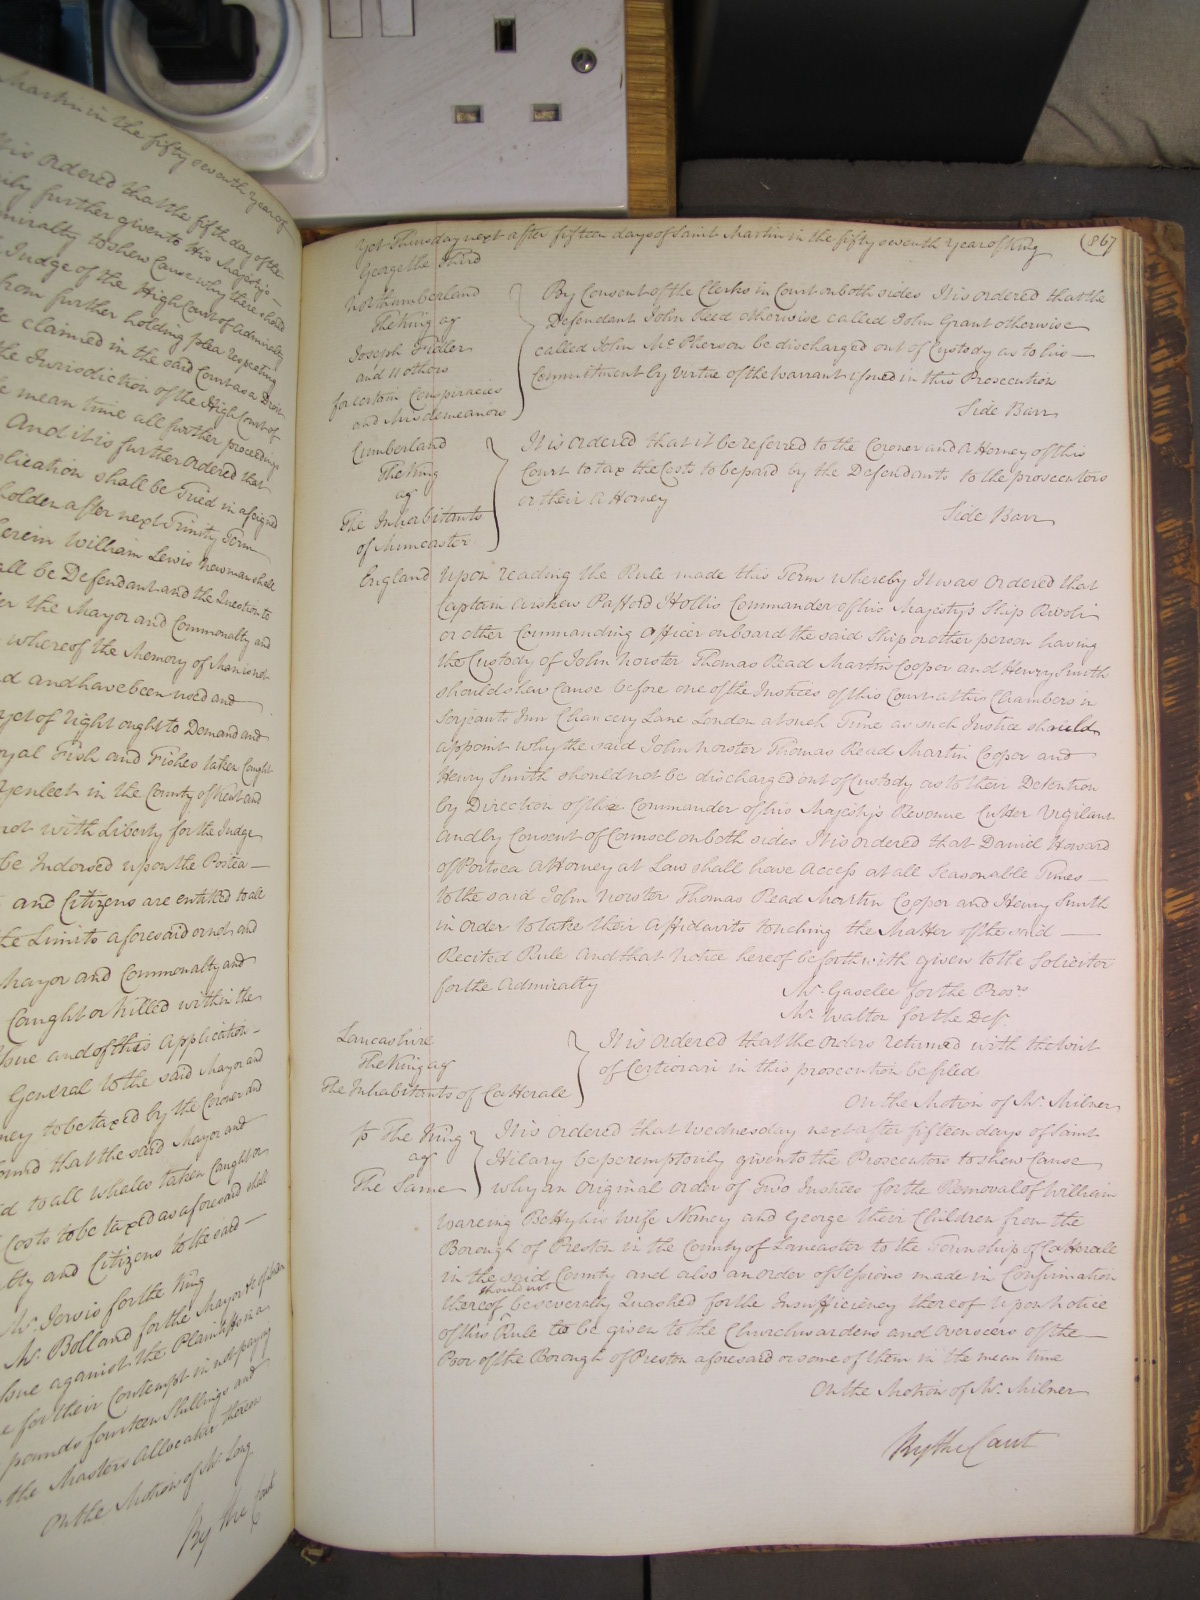 Martin in the fifty seventh year of
It is ordered that the fifth day of the
further given to His Majesty's
Admiralty to shew Cause why there should
Judge of the High Court of Admiralty
from further holding plea respecting
claimed in the said Court as a Droit
the Jurisdiction of the High Court of
mean time all further proceedings
And it is further Ordered that
application shall be Tried in a feigned
holden after next Trinity Term
wherein William Lewis Newman shall
all be Defendant and the Question to
the Mayor and Commonalty and
whereof the Memory of Man is not
and have been used and
yet of right ought to Demand and
Royal Fish and Fishes taken Caught
in the County of Kent and
not with Liberty for the Judge
be Indorsed upon the Postea
and Citizens are entitled to all
the Limits aforesaid or not and
Mayor and Commonalty and
Caught or killed within the
Issue and of this Application
General to the said Mayor and
to be taxed by the Coroner and
found that the said Mayor and
to all whales taken Caught or
Costs to be taxed as aforesaid shall
and Citizens to the said
Mr. Jervis for the King
Mr. Bolland for the Mayor &c of London
Issue against the Plaintiffs in a
for their Contempt in not paying
pounds fourteen Shillings and
the Masters Allocatur thereon
On the Motion of Mr. Long
By the Court
867
Yet Thursday next after fifteen days of Saint Martin in the fifty seventh Year of King
George the Third
Northumberland
The King ag
Joseph Fidler
and 11 others
for certain Conspiracies
and Misdemeanors
By Consent of the Clerks in Court on both sides It is ordered that the
Defendant John Reed otherwise called John Grant otherwise
called John Mc Pherson be discharged out of Custody as to his
Commitment by virtue of the Warrant issued in this Prosecution
Side Barr
Cumberland
The King
ag
The Inhabitants
of Muncaster
It is ordered that it be referred to the Coroner and Attorney of this
Court to tax the Costs to be paid by the Defendants to the prosecutors
or their Attorney
Side Barr
England Upon reading the Rule made this Term whereby It was Ordered that
Captain Aiskew Pafford Hollis Commander of his Majesty's Ship Rivoli
or other Commanding Officer on board the said Ship or other person having
the Custody of John Norster Thomas Read Martin Cooper and Henry Smith
should shew Cause before one of the Justices of this Court at his Chambers in
Serjeants Inn Chancery Lane London at such Time as such Justice should
appoint why the said John Norster Thomas Read Martin Cooper and
Henry Smith should not be discharged out of Custody as to their Detention
by Direction of the Commander of his Majesty's Revenue Cutter Vigilant
and by Consent of Counsel on both sides It is ordered that Daniel Howard
of Portsea Attorney at Law shall have Access at all Seasonable Times
to the said John Norster Thomas Read Martin Cooper and Henry Smith
in order to take their Affidavits touching the Matter of the said
Recited Rule And that Notice hereof be forthwith given to the Solicitor
for the Admiralty
Mr. Gaselee for the Pros:rs
Mr. Walter for the Def:
Lancashire
The King ag
The Inhabitants of Catterale
It is Ordered that the orders returned with the Writ
of Certiorari in this prosecution be filed
On the Motion of Mr. Milner
The King
ag
The Same
It is Ordered that Wednesday next after fifteen days of Saint
Hilary be peremptorily given to the Prosecutors to shew Cause
why an Original order of Two Justices for the Removal of William
Wareing Betty his wife Nancy and George their Children from the
Borough of Preston in the County of Lancaster to the Township of Catterale
in the said County and also an order of Sessions made in Confirmation
should not
thereof be severally Quashed for the Insufficiency thereof Upon Notice
of this Rule to be given to the Churchwardens and Overseers of the
Poor of the Borough of Preston aforesaid or some of them in the mean time
On the Motion of Mr. Milner
By the Court